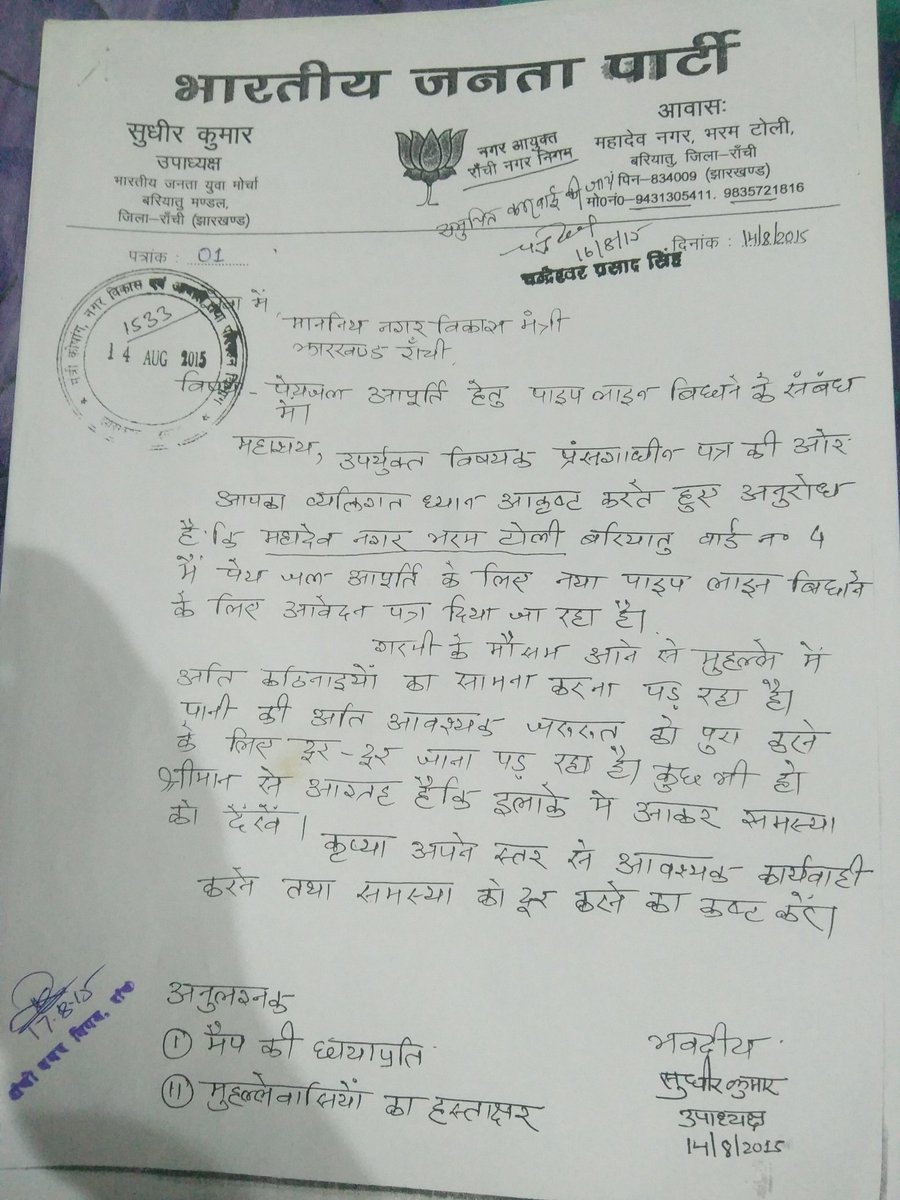 भारतीय जनता पार्टी
सुधीर कुमार
उपाध्यक्ष
भारतीय जनता युवा मोर्चा
बरियातु मण्डल,
जिला-राँची (झारखण्ड)
नगर आयुक्त
राँची नगर निगम
आवासः
महादेव नगर, भरम टोली,
बरियातु, जिला-राँची
पिन-834009 (झारखण्ड)
मो0नं0-9431305411. 9835721816
समुचित कारवाई की जाय
16/8/15
चन्द्रेश्वर प्रसाद सिंह
पत्रांक : 01
दिनांक : 14/8/2015
मंत्री कोषांग, नगर विकास एवं आवास तथा परिवहन विभाग
1533
14 AUG 2015
सेवा में,
माननिय नगर विकास मंत्री
झारखण्ड राँची
विषय- पेयजल आपूर्ति हेतु पाइप लाइन बिछाने के संबंध
मे।
महाशय,
उपर्युक्त विषयक प्रंसगाधीन पत्र की ओर
आपका व्यक्तिगत ध्यान आकृष्ट करते हुए अनुरोध
है कि महादेव नगर भरम टोली बरियातु वार्ड न॰ 4
में पेय जल आपूर्ति के लिए नया पाइप लाइन बिछाने
के लिए आवेदन पत्र दिया जा रहा है।
गरमी के मौसम आने से मुहल्ले में
अति कठिनाइयों का सामना करना पड़ रहा है।
पानी की अति आवश्यक जरूरत को पुरा करने
के लिए दूर-दूर जाना पड़ रहा है। कुछ भी हो
श्रीमान से आग्रह है कि इलाके मे आकर समस्या
को देंखें।
कृप्या अपने स्तर से आवश्यक कार्यवाही
करने तथा समस्या को दूर करने का कष्ट करें।
17-8-15
अनुलग्नक
(I) मैप की छायाप्रति
(II) मुहल्लेवासियों का हस्ताक्षर
भवदीय
सुधीर कुमार
उपाध्यक्ष
14/8/2015